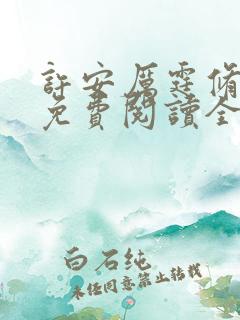 許安厲霆脩
免費閱讀全
白石纯
未经同意禁止转载